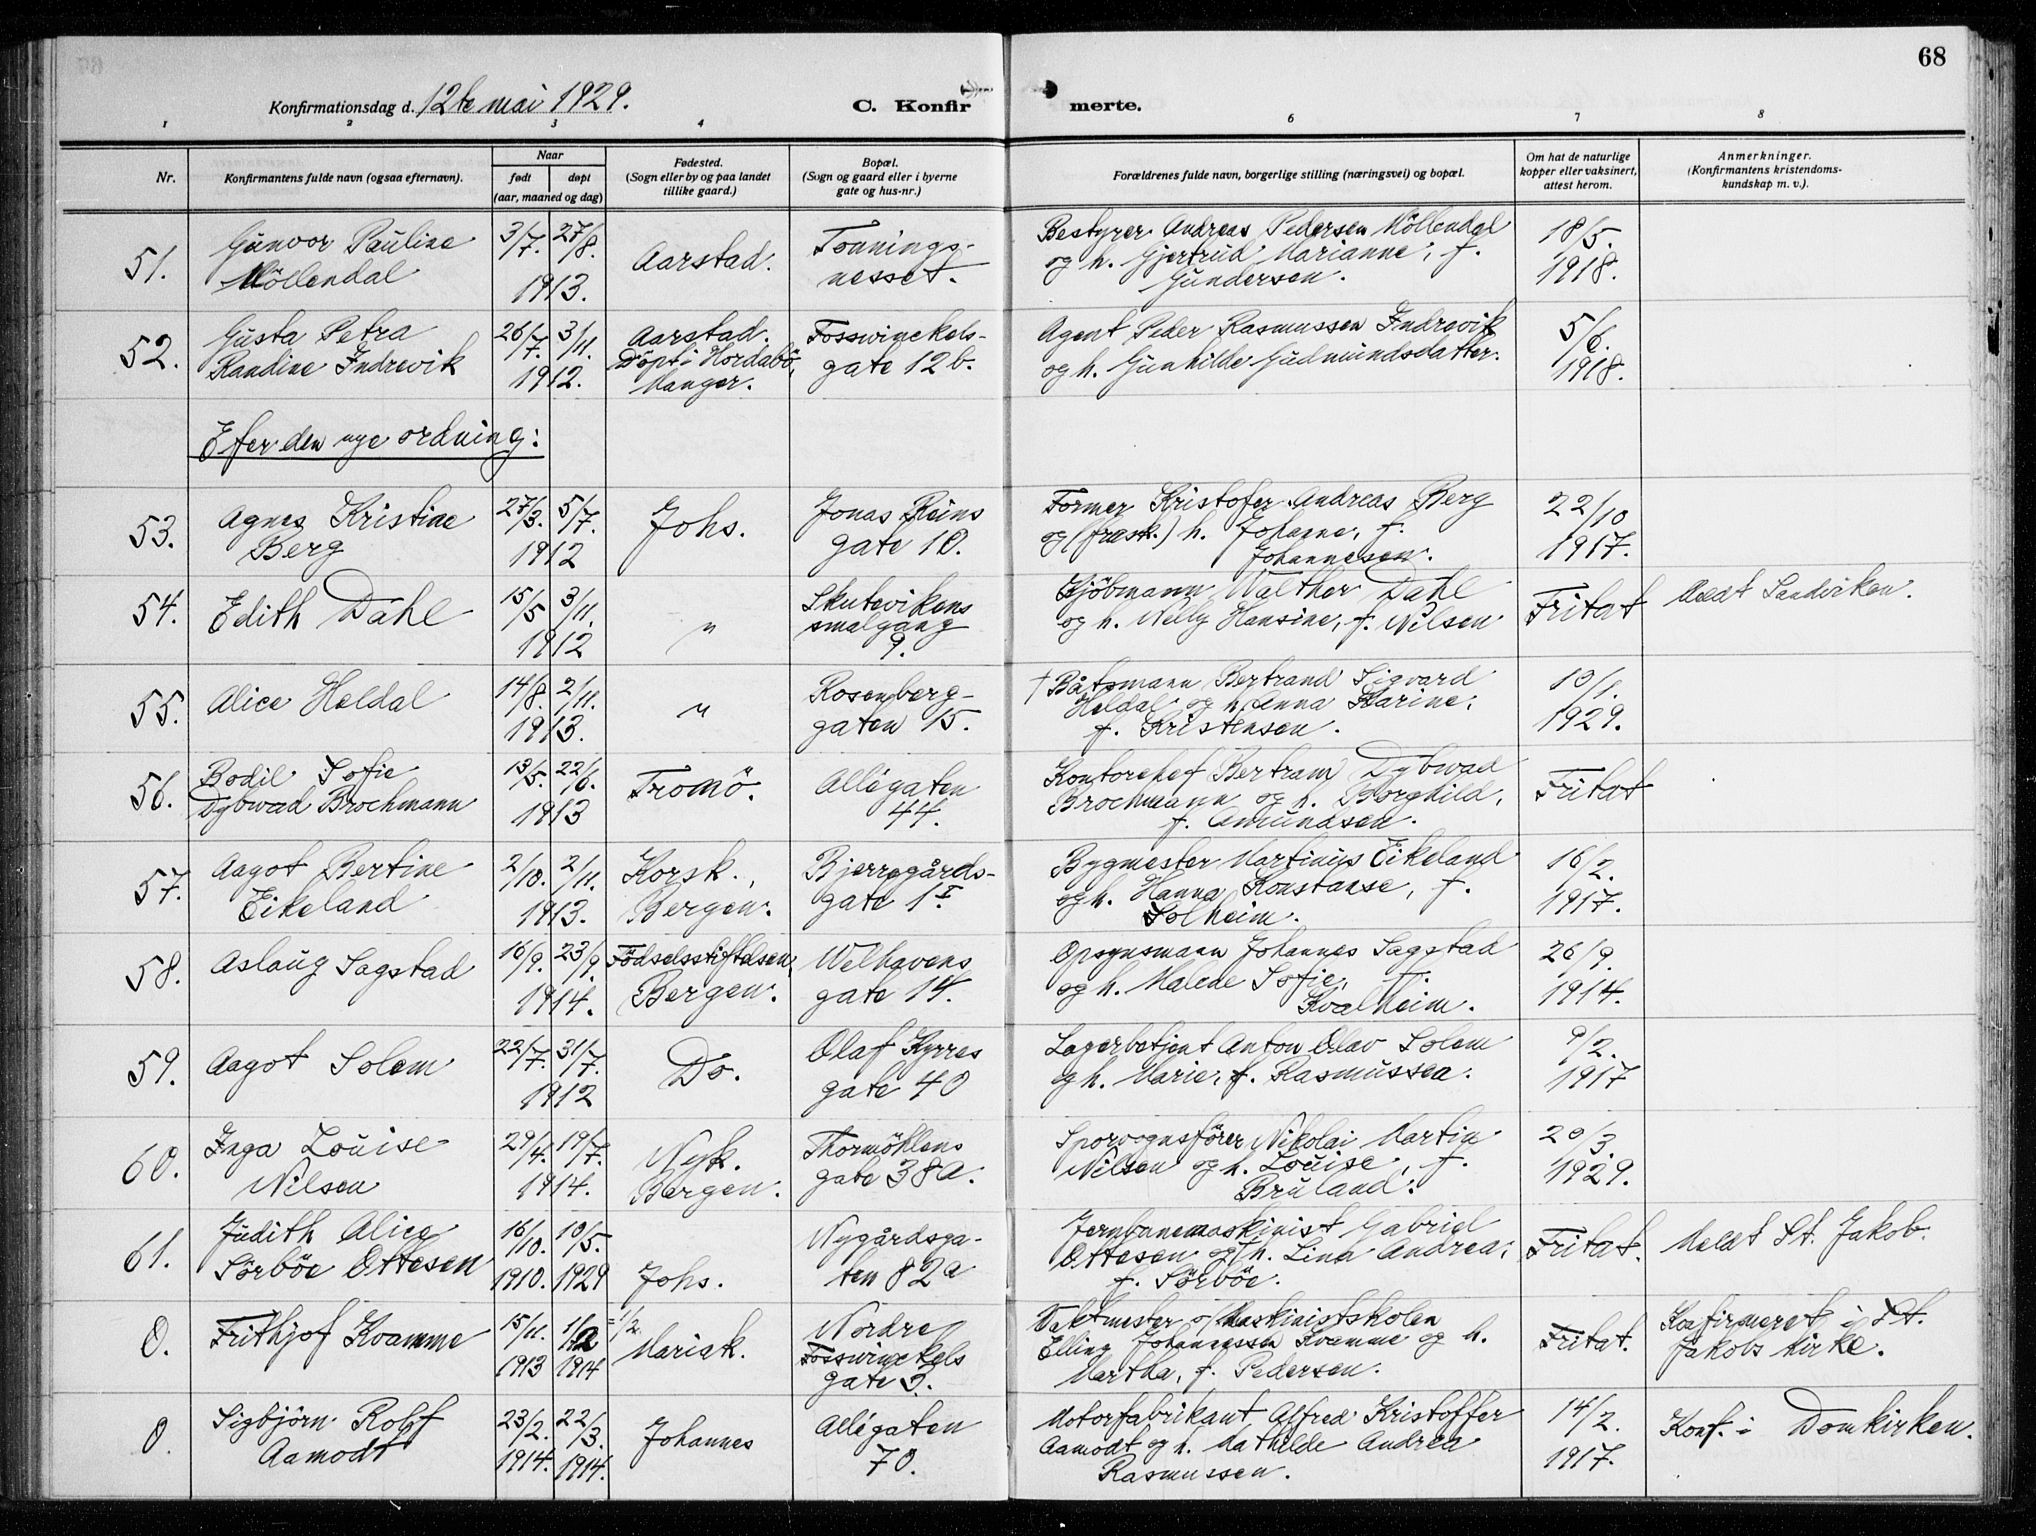 68
Konfirmationsdag d. 12te mai 1929. C. Konfir merte.
1 2 3 4 6 7 8
Nr.
Konfirmantens fulde navn (ogsaa efternavn).
Naar
født døpt
(aar, maaned og dag)
Fødested.
(Sogn eller by og paa landet
tillike gaard.)
Bopæl.
(Sogn og gaard eller i byerne
gate og hus-nr.)
Forældrenes fulde navn, borgerlige stilling (næringsvei) og bopæl.
Om hat de naturlige
kopper eller vaksinert,
attest herom.
Anmerkninger.
(Konfirmantens kristendoms-
kundskap m. v.).
51.
Gunvor Pauline
Möllendal
3/7. 27/8.
1913.
Aarstad.
Tonnings-
nesset.
Bestyrer Andreas Pedersen Möllendal
og h. Gjertrud Marianne, f.
Gundersen.
18/5.
1918.
52.
Gusta Petra
Randine Indrevik
26/7. 3/11.
1912.
Aarstad.
Döpt i Hordabö,
Manger.
Fosswinckels-
gate 12 b.
Agent Peder Rasmussen Indrevik
og h. Gunhilde Gudmundsdatter.
5/6.
1918.
Efter den nye ordning:
53.
Agnes Kristine
Berg
27/3. 5/7.
1912
Johs.
Jonas Reins
gate 10.
Former Kristofer Andreas Berg
og (frask.) h. Johanne, f.
Johannesen.
22/10
1917.
54.
Edith Dahl
15/5 3/11.
1912
"
Skutevikens
smalgang
9.
Kjöbmann Walther Dahl
og h. Nelly Hansine, f. Nilsen
Fritat
Meldt Sandviken.
55.
Alice Heldal
14/8. 2/11.
1913.
"
Rosenberg-
gaten 15.
† Båtsmann Bertrand Sigvard
Heldal og h. Anna Karine,
f. Kristensen.
10/1.
1929.
56.
Bodil Sofie
Dybwad Brochmann
13/5. 22/6.
1913
Tromö.
Allégaten
44.
Kontorchef Bertram Dybwad
Brochmann og h. Borghild,
f. Amundsen.
Fritat
57.
Aagot Bertine
Eikeland
2/10. 2/11.
1913.
Korsk.,
Bergen.
Bjerregårds-
gate 1 I
Bygmester Martinius Eikeland
og h. Hanna Konstanse, f.
Solheim.
16/2.
1917.
58.
Aslaug Sagstad
16/9. 23/9.
1914.
Födselsstiftelsen,
Bergen.
Welhavens
gate 14.
Opsynsmann Johannes Sagstad
og h. Malene Sofie, f.
Kvalheim.
26/9.
1914.
59.
Aagot Solem
22/7. 31/7.
1912
Do.
Olaf Kyrres
gate 40
Lagerbetjent Anton Olav Solem
og h. Marie, f. Rasmussen.
9/2.
1917
60.
Inga Louise
Nilsen
29/4. 19/7.
1914.
Nyk.
Bergen.
Thormöhlens
gate 38a.
Sporvognsförer Nikolai Martin
Nilsen og h. Louise, f.
Bruland.
20/3.
1929.
61.
Judith Alice
Sörböe Ottesen
16/10. 10/5.
1910. 1929
Johs.
Nygårdsga-
ten 82a
Jernbanemaskinist Gabriel
Ottesen og h. Lina Andrea,
f. Sörböe.
Fritat.
Meldt St. Jakob.
0.
Frithjof Kvamme
15/11. 1/2 = 1/2.
1913 1914
Mariak.
Nordre
Fosswinckels
gate 3.
Vaktmester v/ Maskinistskolen
Elling Johannessen Kvamme og h.
Martha, f. Pedersen.
Fritat.
Konfirmeret i St.
Jakobs kirke.
0.
Sigbjörn Rolf
Aamodt
23/2. 22/3.
1914. 1914.
Johannes
Allégaten
70.
Motorfabrikant Alfred Kristoffer
Aamodt og h. Mathilde Andrea
Rasmussen.
14/2.
1917.
Konf. i Domkirken.